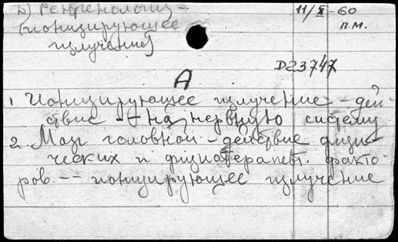 Б) Рентгенология – 11/X-60
(ионизирующее п.м.
излучение)
D23747
А
1. Ионизирующее излучение – дей-
ствие – на нервную систему
2. Мозг головной – действие физи-
ческих и физиотерапевт. факто-
ров -- ионизирующее излучение